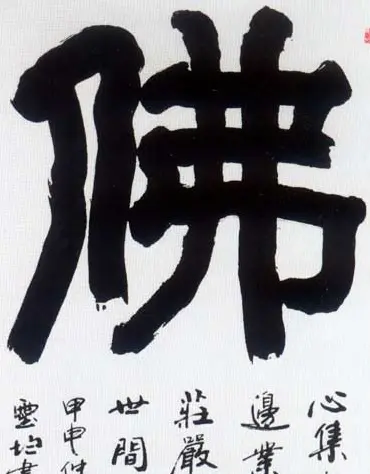 佛
心集
邊業
莊嚴
世間
甲申
雲均書